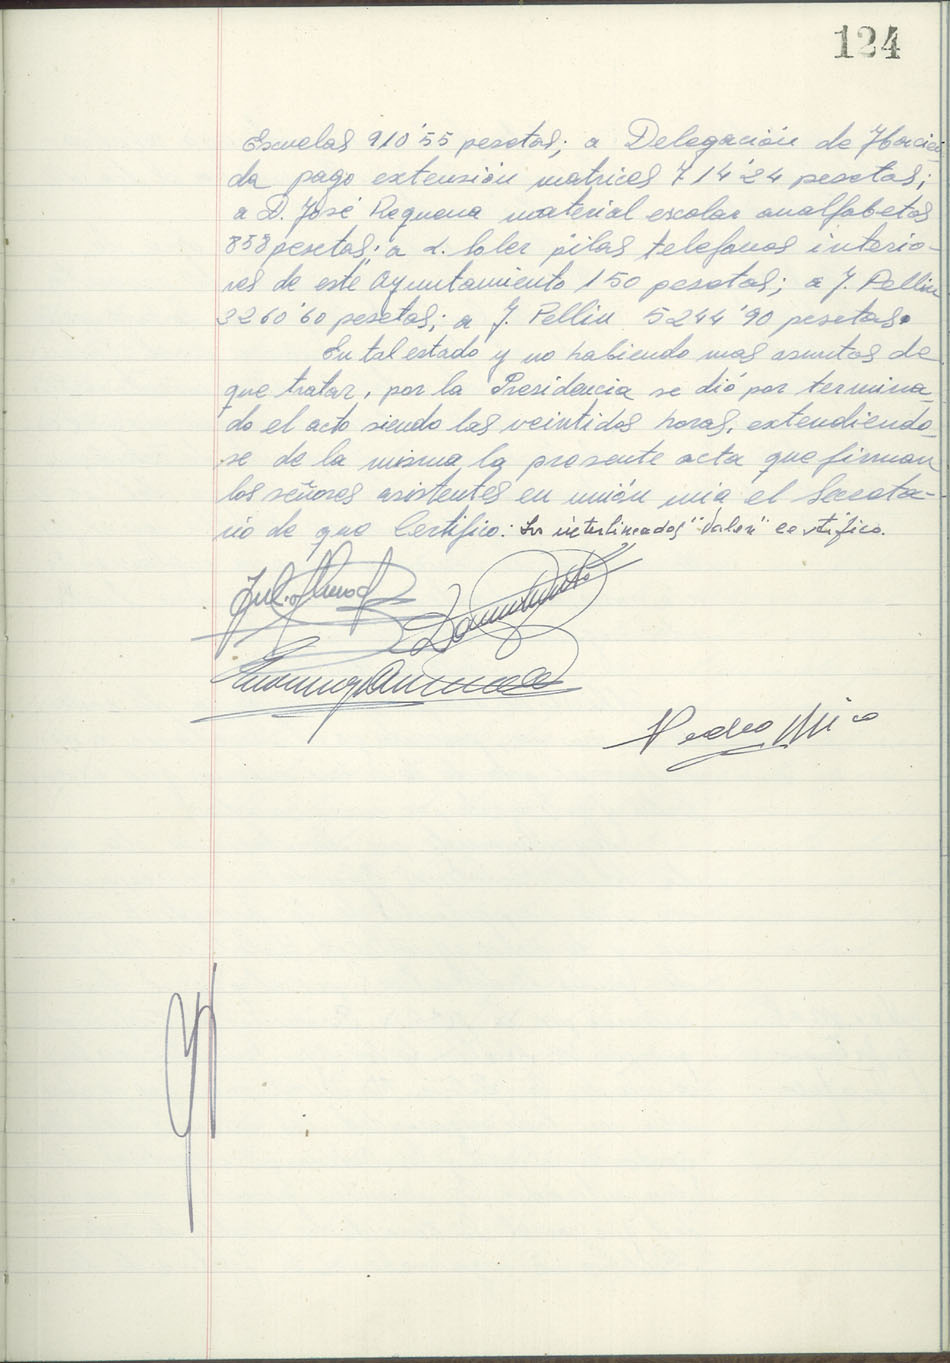 124
Escuelas 910'55 pesetas; a Delegación de Hacien
da pago extensión matrices 7.14'24 pesetas;
a D. José Requena material escolar analfabetos
858 pesetas; a L. Soler pilas telefonos interio-
res de este Ayuntamiento 150 pesetas; a J. Pellin
3260'60 pesetas; a J. Pellin 5244'90 pesetas.
En tal estado y no habiendo mas asuntos de
que tratar, por la Presidencia se dió por termina-
do el acto siendo las veintidos horas, extendiendo-
se de la misma la presente acta que firman
los señores asistentes en unión mia el Secreta-
rio de que Certifico: Los interlineados "Valen" certifico.
Pedro Mico